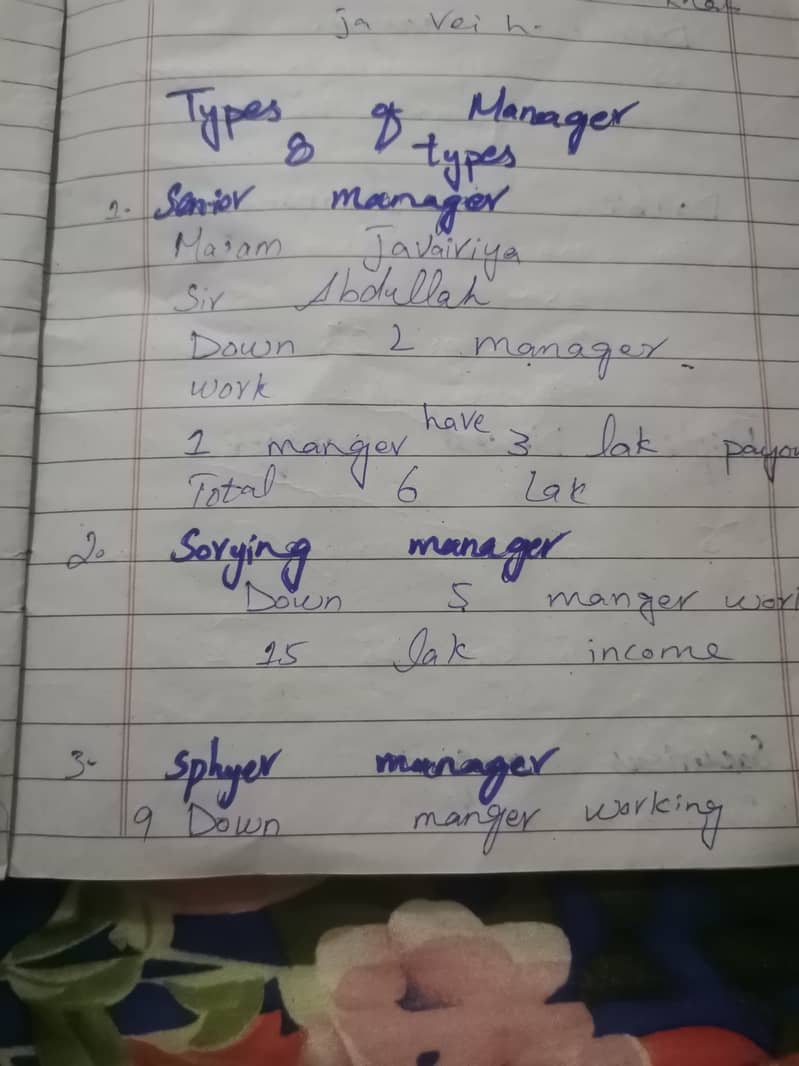 ja vei h.
Types of Manager
8 types
1. Senior manager
Ma'am Javairiya
Sir Abdullah
Down 2 manager
work
1 manger have 3 lak
Total 6 Lak
2. Sorying manager
Down 5 manger
15 lak income
3- sphyer manager
9 Down manger working